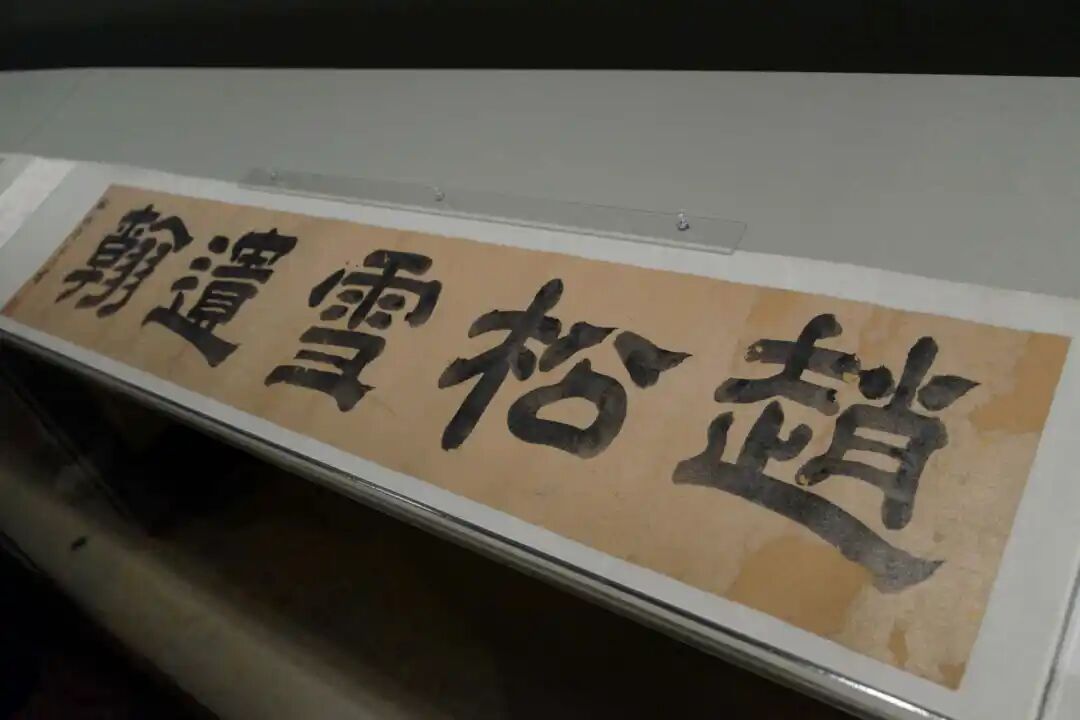 趙松雪遺翰